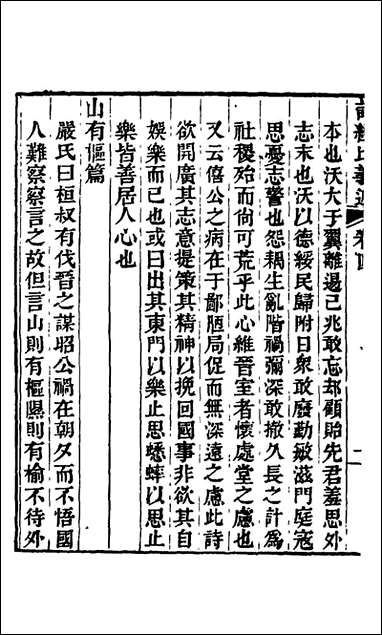 本也沃大于翼離遏已兆敢忘却顧貽先君羞思外
志末也沃以德綏民歸附日衆敢廢勤敏滋門庭寇
思憂志警也怨耦生亂階禍彌深敢撤久長之計爲
社稷殆而尙可荒乎此心維晉室者懷處堂之慮也
又云僖公之病在于鄙陋局促而無深遠之慮此詩
欲開廣其志意提策其精神以挽回國事非欲其自
娛樂而已也或曰出其東門以樂止思蟋蟀以思止
樂皆善居人心也
山有樞篇
嚴氏曰桓叔有伐晉之謀昭公禍在朝夕而不悟國
人難察察言之故但言山則有樞隰則有榆不待外
卷四
二